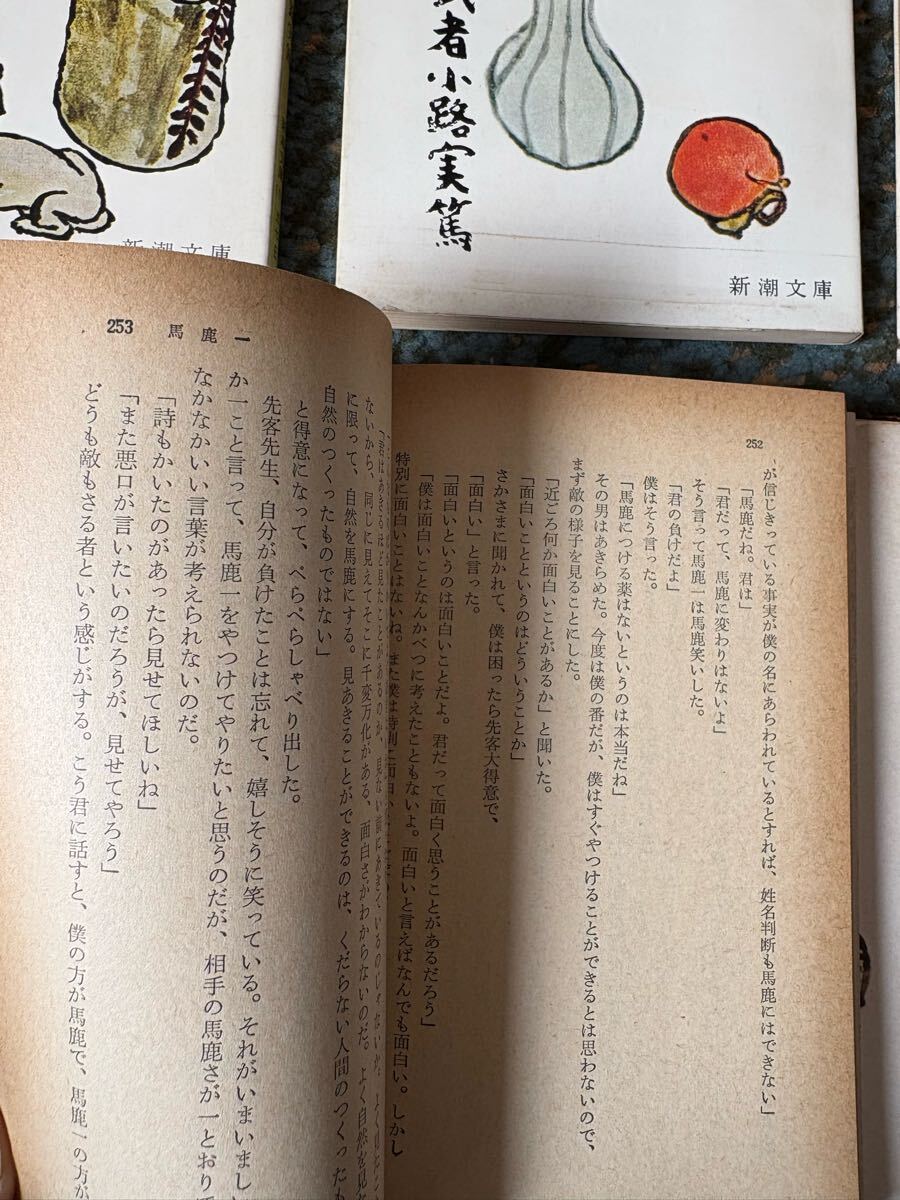 武者小路実篤
新潮文庫
新潮文庫
252
が信じきっている事実が僕の名にあらわれているとすれば、姓名判断も馬鹿にはできない」
「馬鹿だね。君は」
「君だって、馬鹿に変わりはないよ」
そう言って馬鹿一は馬鹿笑いした。
「君の負けだよ」
僕はそう言った。
「馬鹿につける薬はないというのは本当だね」
その男はあきらめた。今度は僕の番だが、僕はすぐやつけることができるとは思わないので、
まず敵の様子を見ることにした。
「近ごろ何か面白いことがあるか」と聞いた。
「面白いことというのはどういうことか」
さかさまに聞かれて、僕は困ったら先客大得意で、
「面白い」と言った。
「面白いというのは面白いことだよ。君だって面白く思うことがあるだろう」
「僕は面白いことなんかべつに考えたこともないよ。面白いと言えばなんでも面白い。しかし
特別に面白いことはないね。また僕は特別に面白い
253 馬鹿一
「君はあきるほど見たことがあるのか、見ない前にあきているのじゃないか。
ないから、同じに見えてそこに千変万化がある、面白さがわからないのだ。よく自然を見
に限って、自然を馬鹿にする。見あきることができるのは、くだらない人間のつくった
自然のつくったものではない」
と得意になって、べらべらしゃべり出した。
先客先生、自分が負けたことは忘れて、嬉しそうに笑っている。それがいまいまし
か一こと言って、馬鹿一をやつけてやりたいと思うのだが、相手の馬鹿さが一とおり
なかなかいい言葉が考えられないのだ。
「詩もかいたのがあったら見せてほしいね」
「また悪口が言いたいのだろうが、見せてやろう」
どうも敵もさる者という感じがする。こう君に話すと、僕の方が馬鹿で、馬鹿一の方が